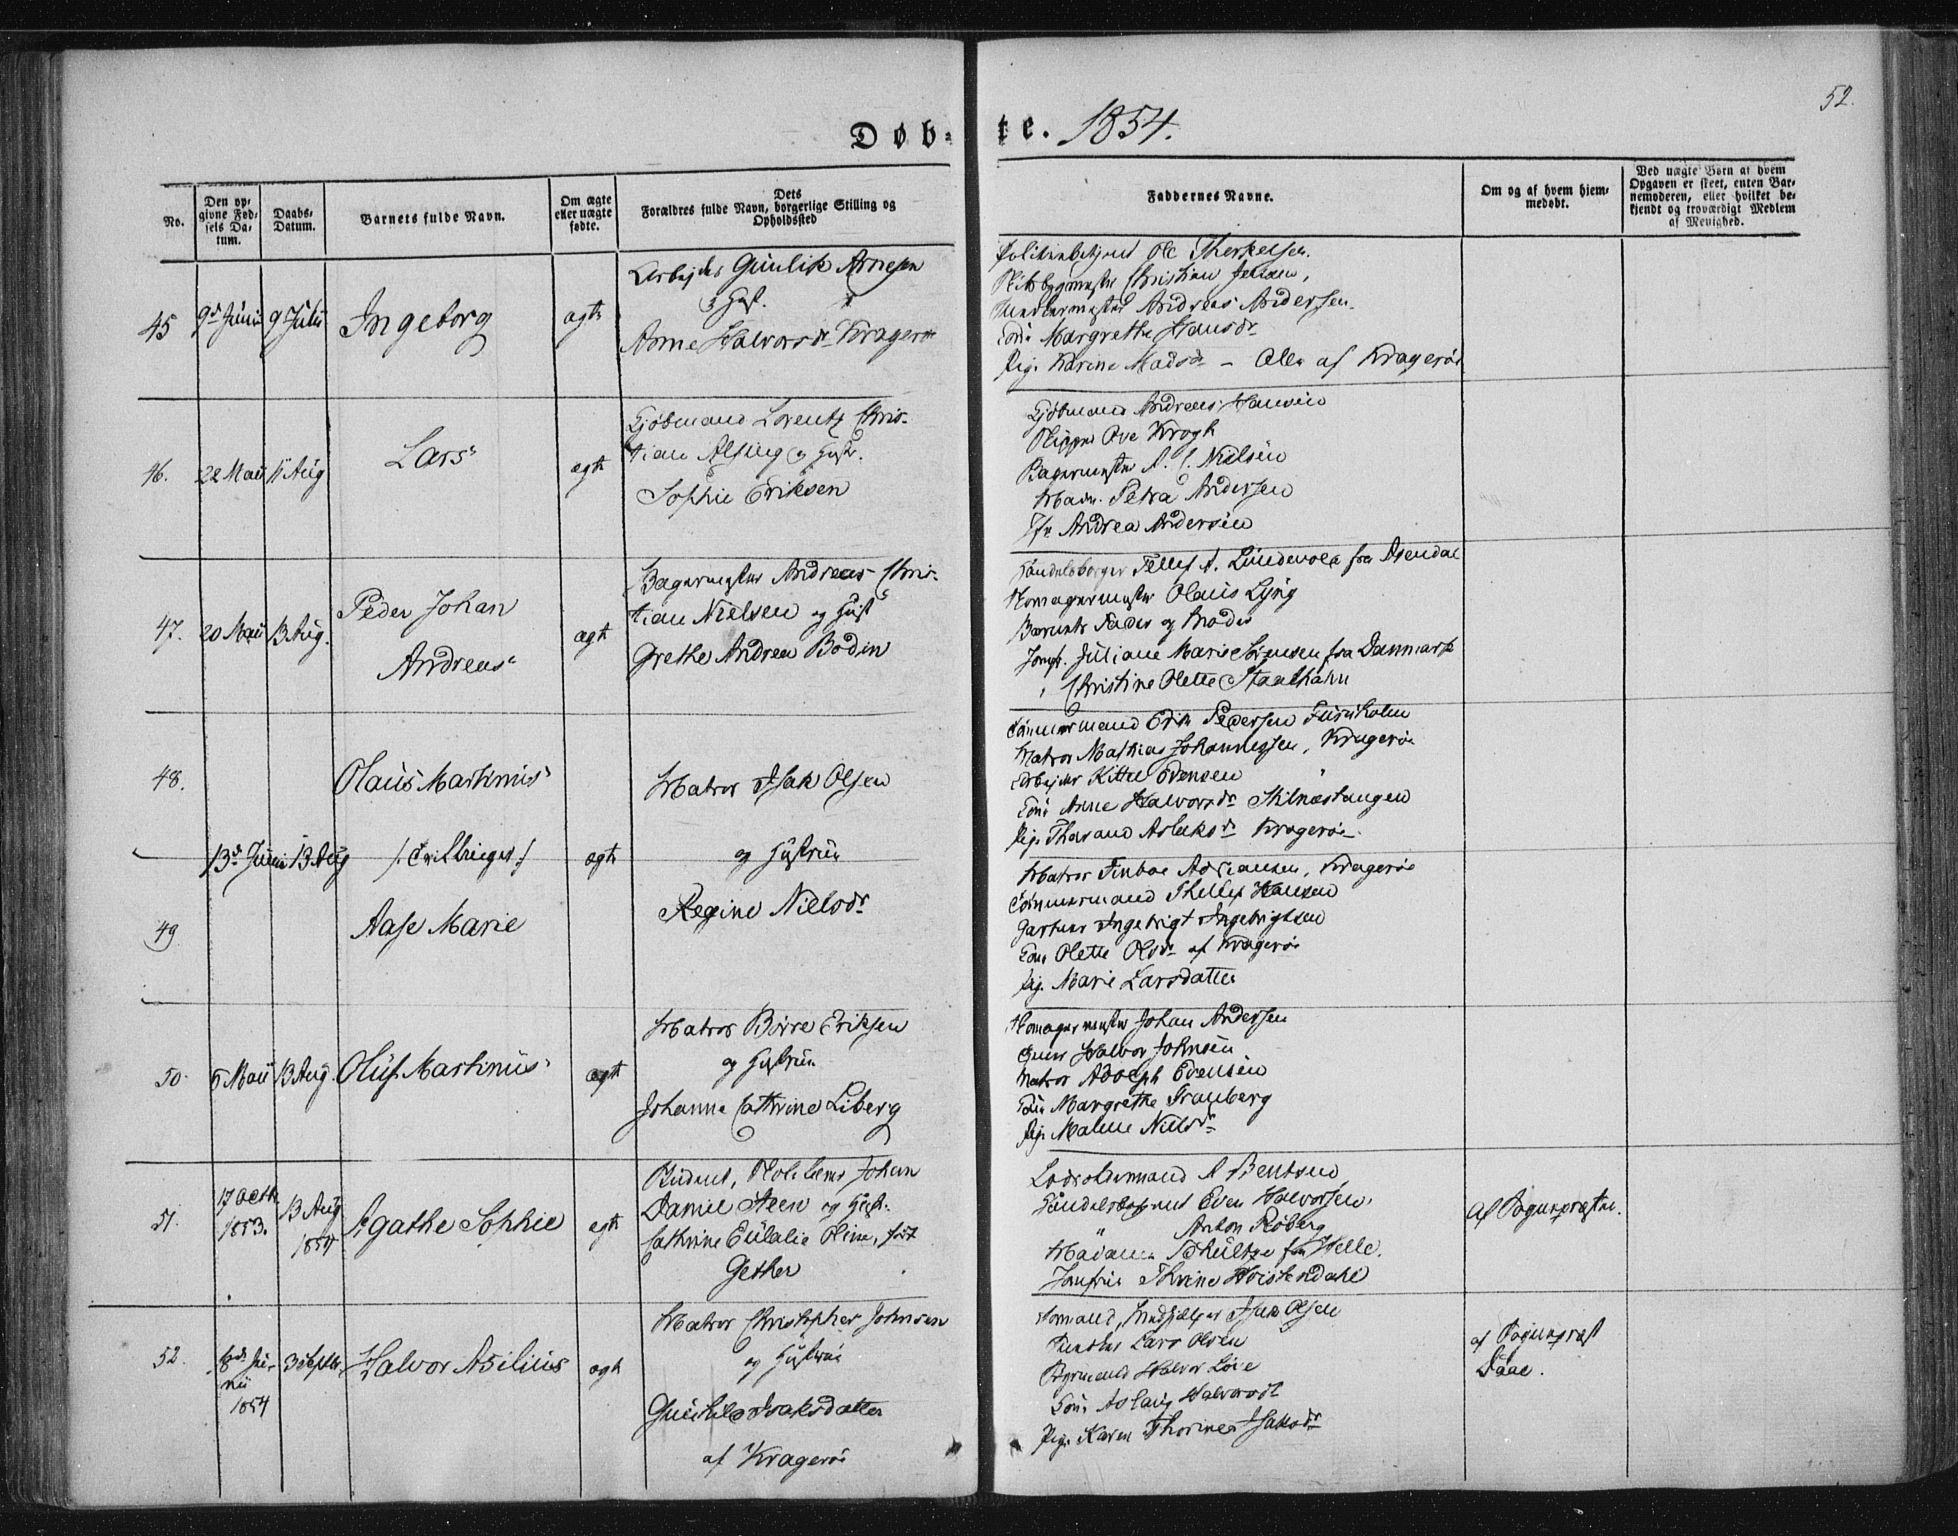 52.
Døb-te. 1854.
No.
Den op-
givne Fød-
sels Da-
tum.
Daabs-
Datum.
Barnets fulde Navn.
Om ægte
eller uægte
fødte.
Dets
Forældres fulde Navn, borgerlige Stilling og
Opholdssted
Faddernes Navne.
Om og af hvem hjem-
medøbt.
Ved uægte Børn at hvem
Opgaven er skeet, enten Bar-
nemoderen, eller hvilket be-
kjendt og troværdigt Medlem
af Menighed.
45
9d Junii
9 Julii
Ingeborg
ægte
Arbejder Gunlik Arnesen
Anne Halvorsdr Kragerøe
Ole Therkelsen.
Christian Jensen,
Andreas Andersen.
Margrethe Hansdr
Pige Karine Madsdr – Alle af Kragerøe
46.
22 Maii
11 Aug
Lars
ægte
Kjøbmand Lorentz Chris-
tian Alsing og Hustr.
Sophie Eriksen
Kjøbmand Andreas Hansen
Skipper Ove Krogh
Bagermester A. C. Nielsen
Madm. Petra Andersen
Jfr Andrea Andersen
47.
20 Maii
13 Aug.
Peder Johan
Andreas
ægte
Bagermester Andreas Chris-
tian Nielsen og Hust
Grethe Andrea Bodin
Handelsborger Tellef A. fra Arendal
Skomagermester Olaus Lyng
Barnets Fader og Moder
Jomfr. Juliane Marie Sørensen fra Danmark
" Christine Olette Staalhahn
48.
13d Junii
13 Aug
Olaus Martinus
/: Tvillinger :/
ægte
Matros Isak Olsen
og Hustrue
Regine Nielsdr
Tømmermand Erik Pedersen Furuholm
Matros Mathias Johannesen, Kragerøe
Arbejder Kittel Evensen "
Kone Anne Halvorsdr Stilnæstangen
Pige Tharand Aslaksdr Kragerøe
49
Aase Marie
Matros Adriansen, Kragerøe
Tømmermand Thellef Hansen
Gartner Ingebrigt Ingebrigtsen
Kone Olette Olsdr af Kragerøe
Pige Marie Larsdatter
50.
6 Maii
13 Aug.
Oluf Martinus
ægte
Matros Børre Eriksen
og Hustrue
Johanne Cathrine Liberg
Skomagermester Johan Andersen
Halvor Johnsen
Matros Adolph Evensen
Kone Margrethe Tranberg
Pige Malene Nielsdr
51.
17 Octb
1853.
13 Aug
1854
Agathe Sophie
ægte
Student, Johan
Daniel Steen og Hustr.
Cathrine Eulalia Oline, født
Gether
Lodsoldermand A Bentsen
Handelsbetjent Even Halvorsen,
" Anton Roberg
Madame Schultze fra Helle.
Jomfrue Thrine Hvistendahl
Af Sognepræsten.
52.
6de Ju-
nii
1854
3 Septbr.
Halvor Asilius
ægte
Matros Christopher Johnsen
og Hustrue
Gunhild Isaksdatter
af Kragerøe
Isak Olsen
Lars Olsen
Styrmand Halvor Løve
Kone Aslaug Halvorsdr
Pige Karen Thorine Isaksdr
af Sognepræst
Daae.